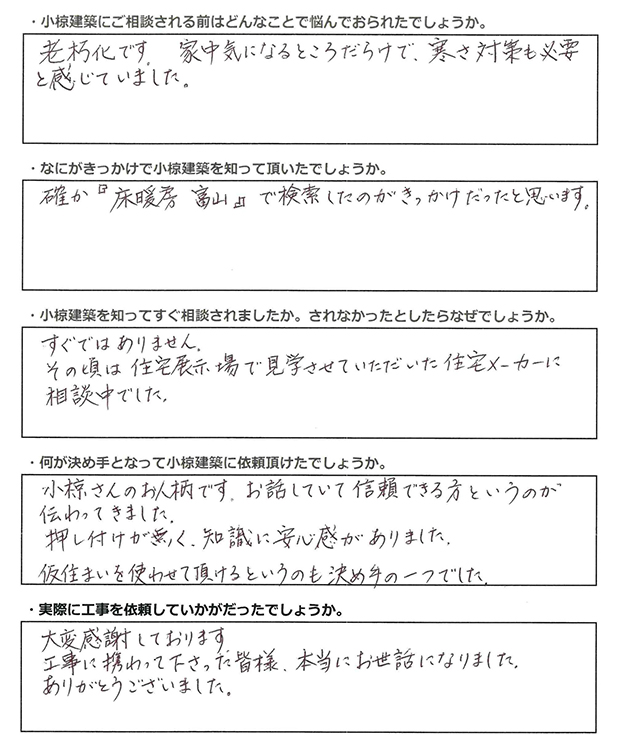 ・小椋建築にご相談される前はどんなことで悩んでおられたでしょうか。
老朽化です. 家中気になるところだらけで、寒さ対策も必要
と感じていました。
・なにがきっかけで小椋建築を知って頂いたでしょうか。
確か『床暖房 富山』で検索したのがきっかけだったと思います。
・小椋建築を知ってすぐ相談されましたか。されなかったとしたらなぜでしょうか。
すぐではありません.
その頃は住宅展示場で見学させていただいた住宅メーカーに
相談中でした.
・何が決め手となって小椋建築に依頼頂けたでしょうか。
小椋さんのお人柄です. お話していて信頼できる方というのが
伝わってきました.
押し付けが無く、知識に安心感がありました.
仮住まいを使わせて頂けるというのも決め手の一つでした.
・実際に工事を依頼していかがだったでしょうか。
大変感謝しております
工事に携わって下さった皆様、本当にお世話になりました.
ありがとうございました。